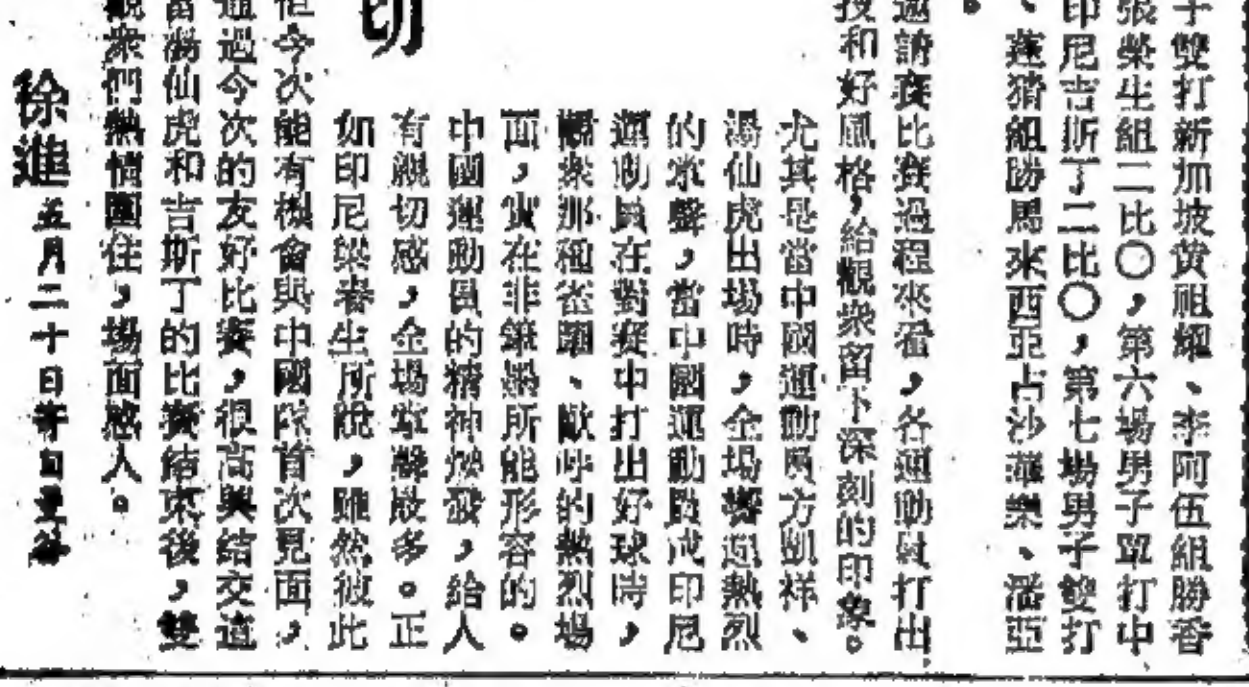 子雙打新加坡黃祖耀、李阿伍組勝香
張榮生組二比〇，第六場男子單打中
印尼吉斯丁二比〇，第七場男子雙打
、蓬猜組勝馬來西亞占沙 、潘亞
。
邀請賽比賽過程來看，各運動員打出
技和好風格，給觀衆留下深刻的印象。
尤其是當中國運動員方凱祥、
湯仙虎出場時，全場響起熱烈
的掌聲，當中國運動員或印尼
運動員在對賽中打出好球時，
觀衆那種雀躍、歡呼的熱烈場
面，實在非筆墨所能形容的。
中國運動員的精神煥發，給人
有親切感，全場掌聲最多。正
如印尼梁春生所說，雖然彼此
切
但今次能有機會與中國隊首次見面，
通過今次的友好比賽，很高興結交這
當湯仙虎和吉斯丁的比賽結束後，雙
觀衆們熱情圍住，場面感人。
徐進 五月二十日寄自曼谷